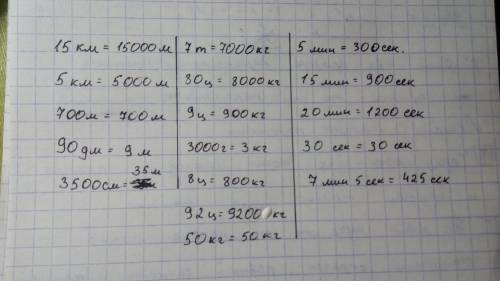 15 км = 15000 м
5 км = 5000 м
700 м = 700 м
90 дм = 9 м
3500 см = 35 м
7 т = 7000 кг
80 ц = 8000 кг
9 ц = 900 кг
3000 г = 3 кг
8 ц = 800 кг
92 ц = 9200 кг
50 кг = 50 кг
5 мин = 300 сек.
15 мин = 900 сек
20 мин = 1200 сек
30 сек = 30 сек
7 мин 5 сек = 425 сек